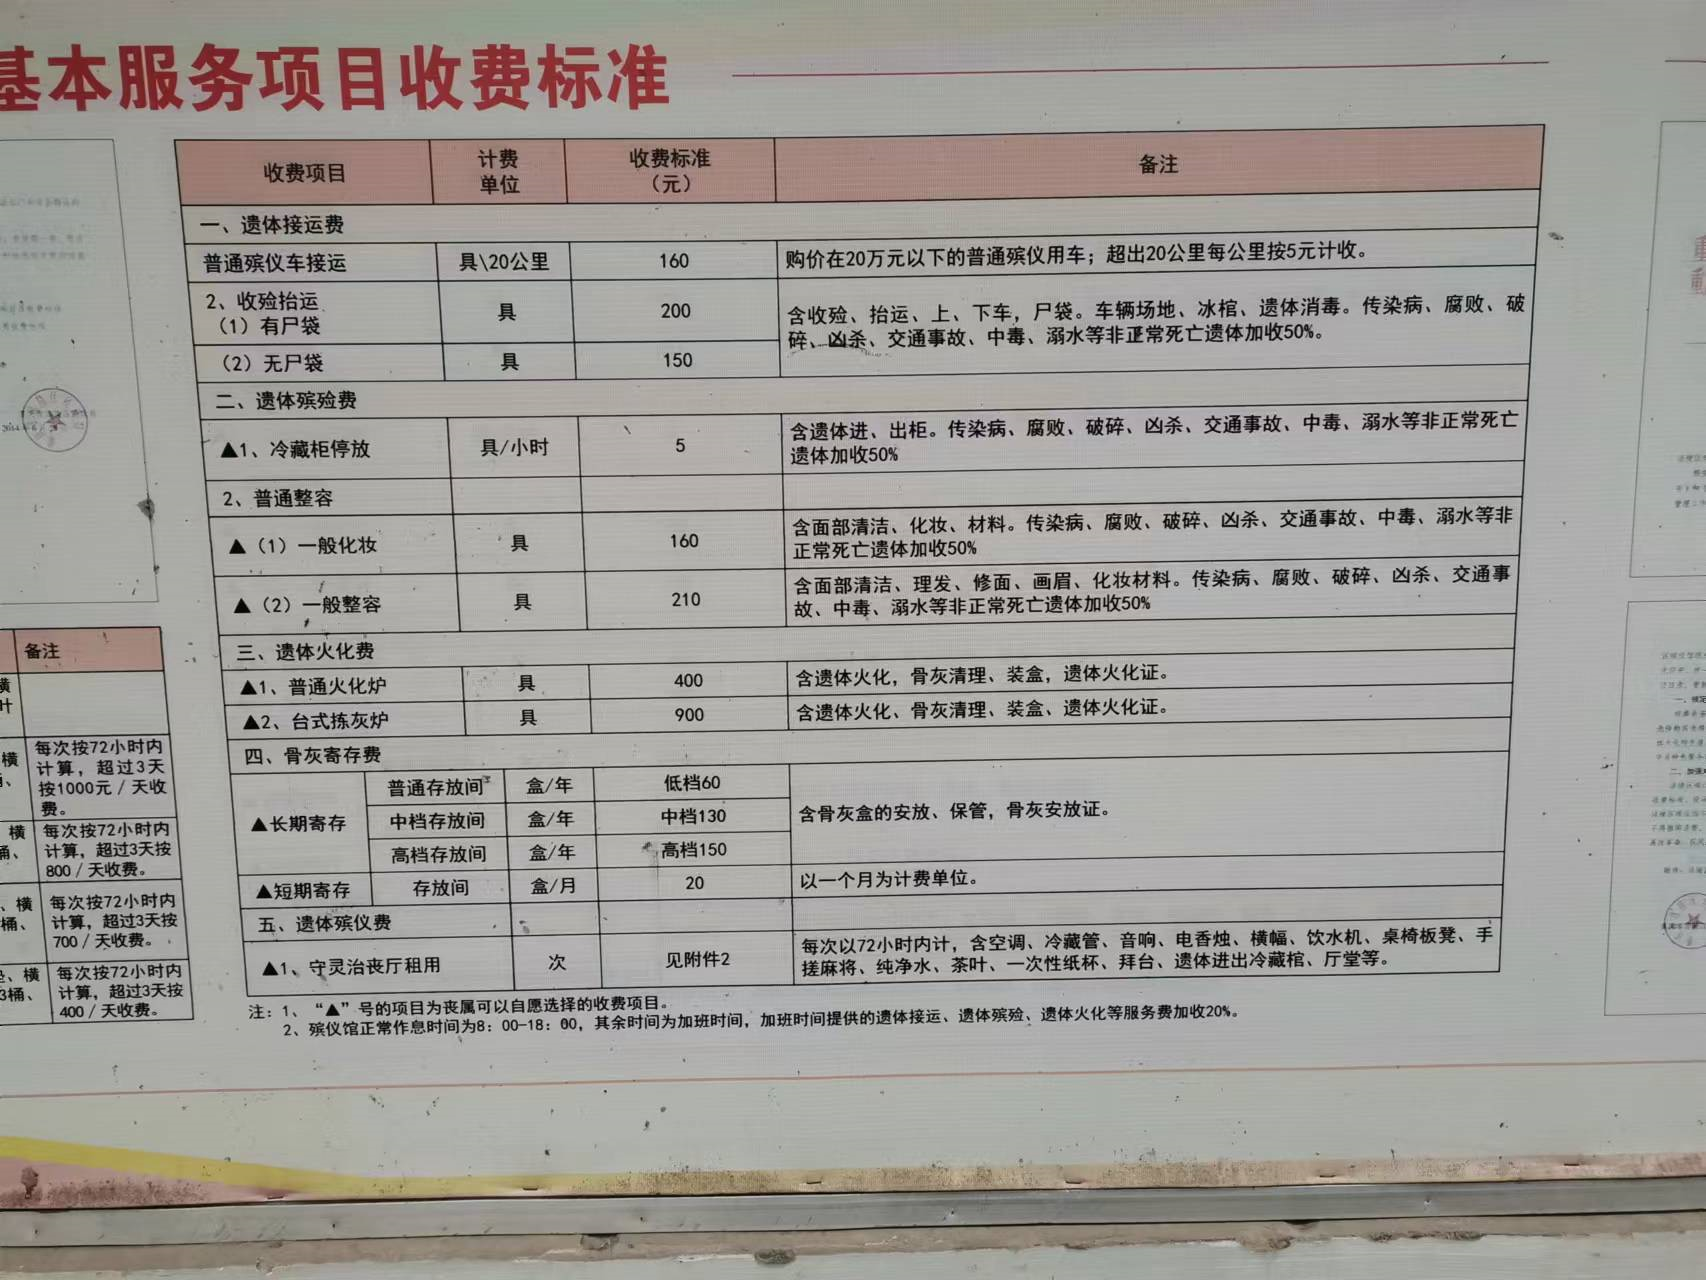 基本服务项目收费标准
收费项目 计费单位 收费标准（元） 备注
一、遗体接运费
普通殡仪车接运 具\20公里 160 购价在20万元以下的普通殡仪用车；超出20公里每公里按5元计收。
2、收殓抬运
（1）有尸袋 具 200
含收殓、抬运、上、下车，尸袋。车辆场地、冰棺、遗体消毒。传染病、腐败、破
碎、凶杀、交通事故、中毒、溺水等非正常死亡遗体加收50%。
（2）无尸袋 具 150
二、遗体殡殓费
▲1、冷藏柜停放 具/小时 5
含遗体进、出柜。传染病、腐败、破碎、凶杀、交通事故、中毒、溺水等非正常死亡
遗体加收50%
2、普通整容
▲（1）一般化妆 具 160
含面部清洁、化妆、材料。传染病、腐败、破碎、凶杀、交通事故、中毒、溺水等非
正常死亡遗体加收50%
▲（2）一般整容 具 210
含面部清洁、理发、修面、画眉、化妆材料。传染病、腐败、破碎、凶杀、交通事
故、中毒、溺水等非正常死亡遗体加收50%
三、遗体火化费
▲1、普通火化炉 具 400 含遗体火化，骨灰清理、装盒，遗体火化证。
▲2、台式拣灰炉 具 900 含遗体火化、骨灰清理、装盒、遗体火化证。
四、骨灰寄存费
▲长期寄存 普通存放间 盒/年 低档60
中档存放间 盒/年 中档130
含骨灰盒的安放、保管，骨灰安放证。
高档存放间 盒/年 高档150
▲短期寄存 存放间 盒/月 20 以一个月为计费单位。
五、遗体殡仪费
▲1、守灵治丧厅租用 次 见附件2
每次以72小时内计，含空调、冷藏管、音响、电香烛、横幅、饮水机、桌椅板凳、手
搓麻将、纯净水、茶叶、一次性纸杯、拜台、遗体进出冷藏棺、厅堂等。
注：1、“▲”号的项目为丧属可以自愿选择的收费项目。
2、殡仪馆正常作息时间为8：00-18：00，其余时间为加班时间，加班时间提供的遗体接运、遗体殡殓、遗体火化等服务费加收20%。
备注
横
叶
横
每次按72小时内
计算，超过3天
按1000元/天收
费。
横
桶、
每次按72小时内
计算，超过3天按
800/天收费。
、横
桶、
每次按72小时内
计算，超过3天按
700/天收费。
、横
3桶、
每次按72小时内
计算，超过3天按
400/天收费。